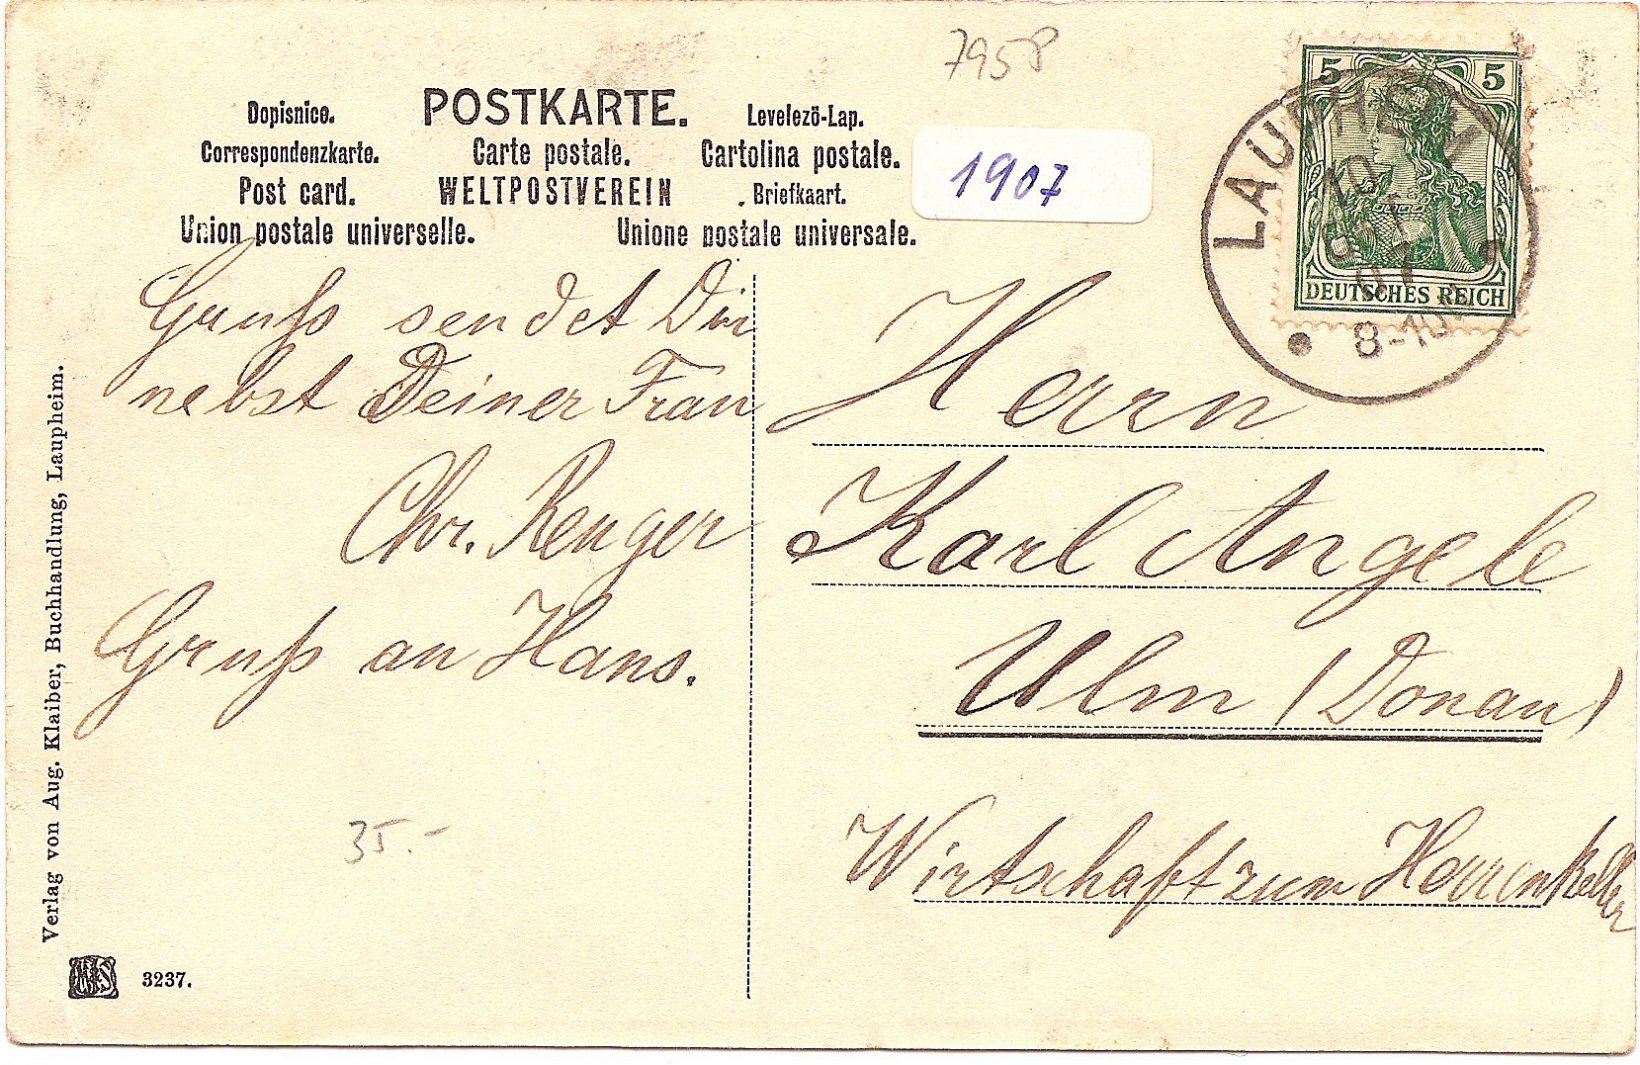 7958
Dopisnice. POSTKARTE. Levelezö-Lap.
Correspondenzkarte. Carte postale. Cartolina postale.
Post card. WELTPOSTVEREIN Briefkaart.
Union postale universelle. Unione postale universale.
1907
5 5
DEUTSCHES REICH
LAUPHEIM
10
OKT
07
8-10
Gruß sendet Dir
nebst Deiner Frau
Chr. Renger
Gruß an Hans.
35.-
Herrn
Karl Angele
Ulm (Donau)
Wirtschaft zum Herrenkeller
Verlag von Aug. Klaiber, Buchhandlung, Laupheim.
3237.